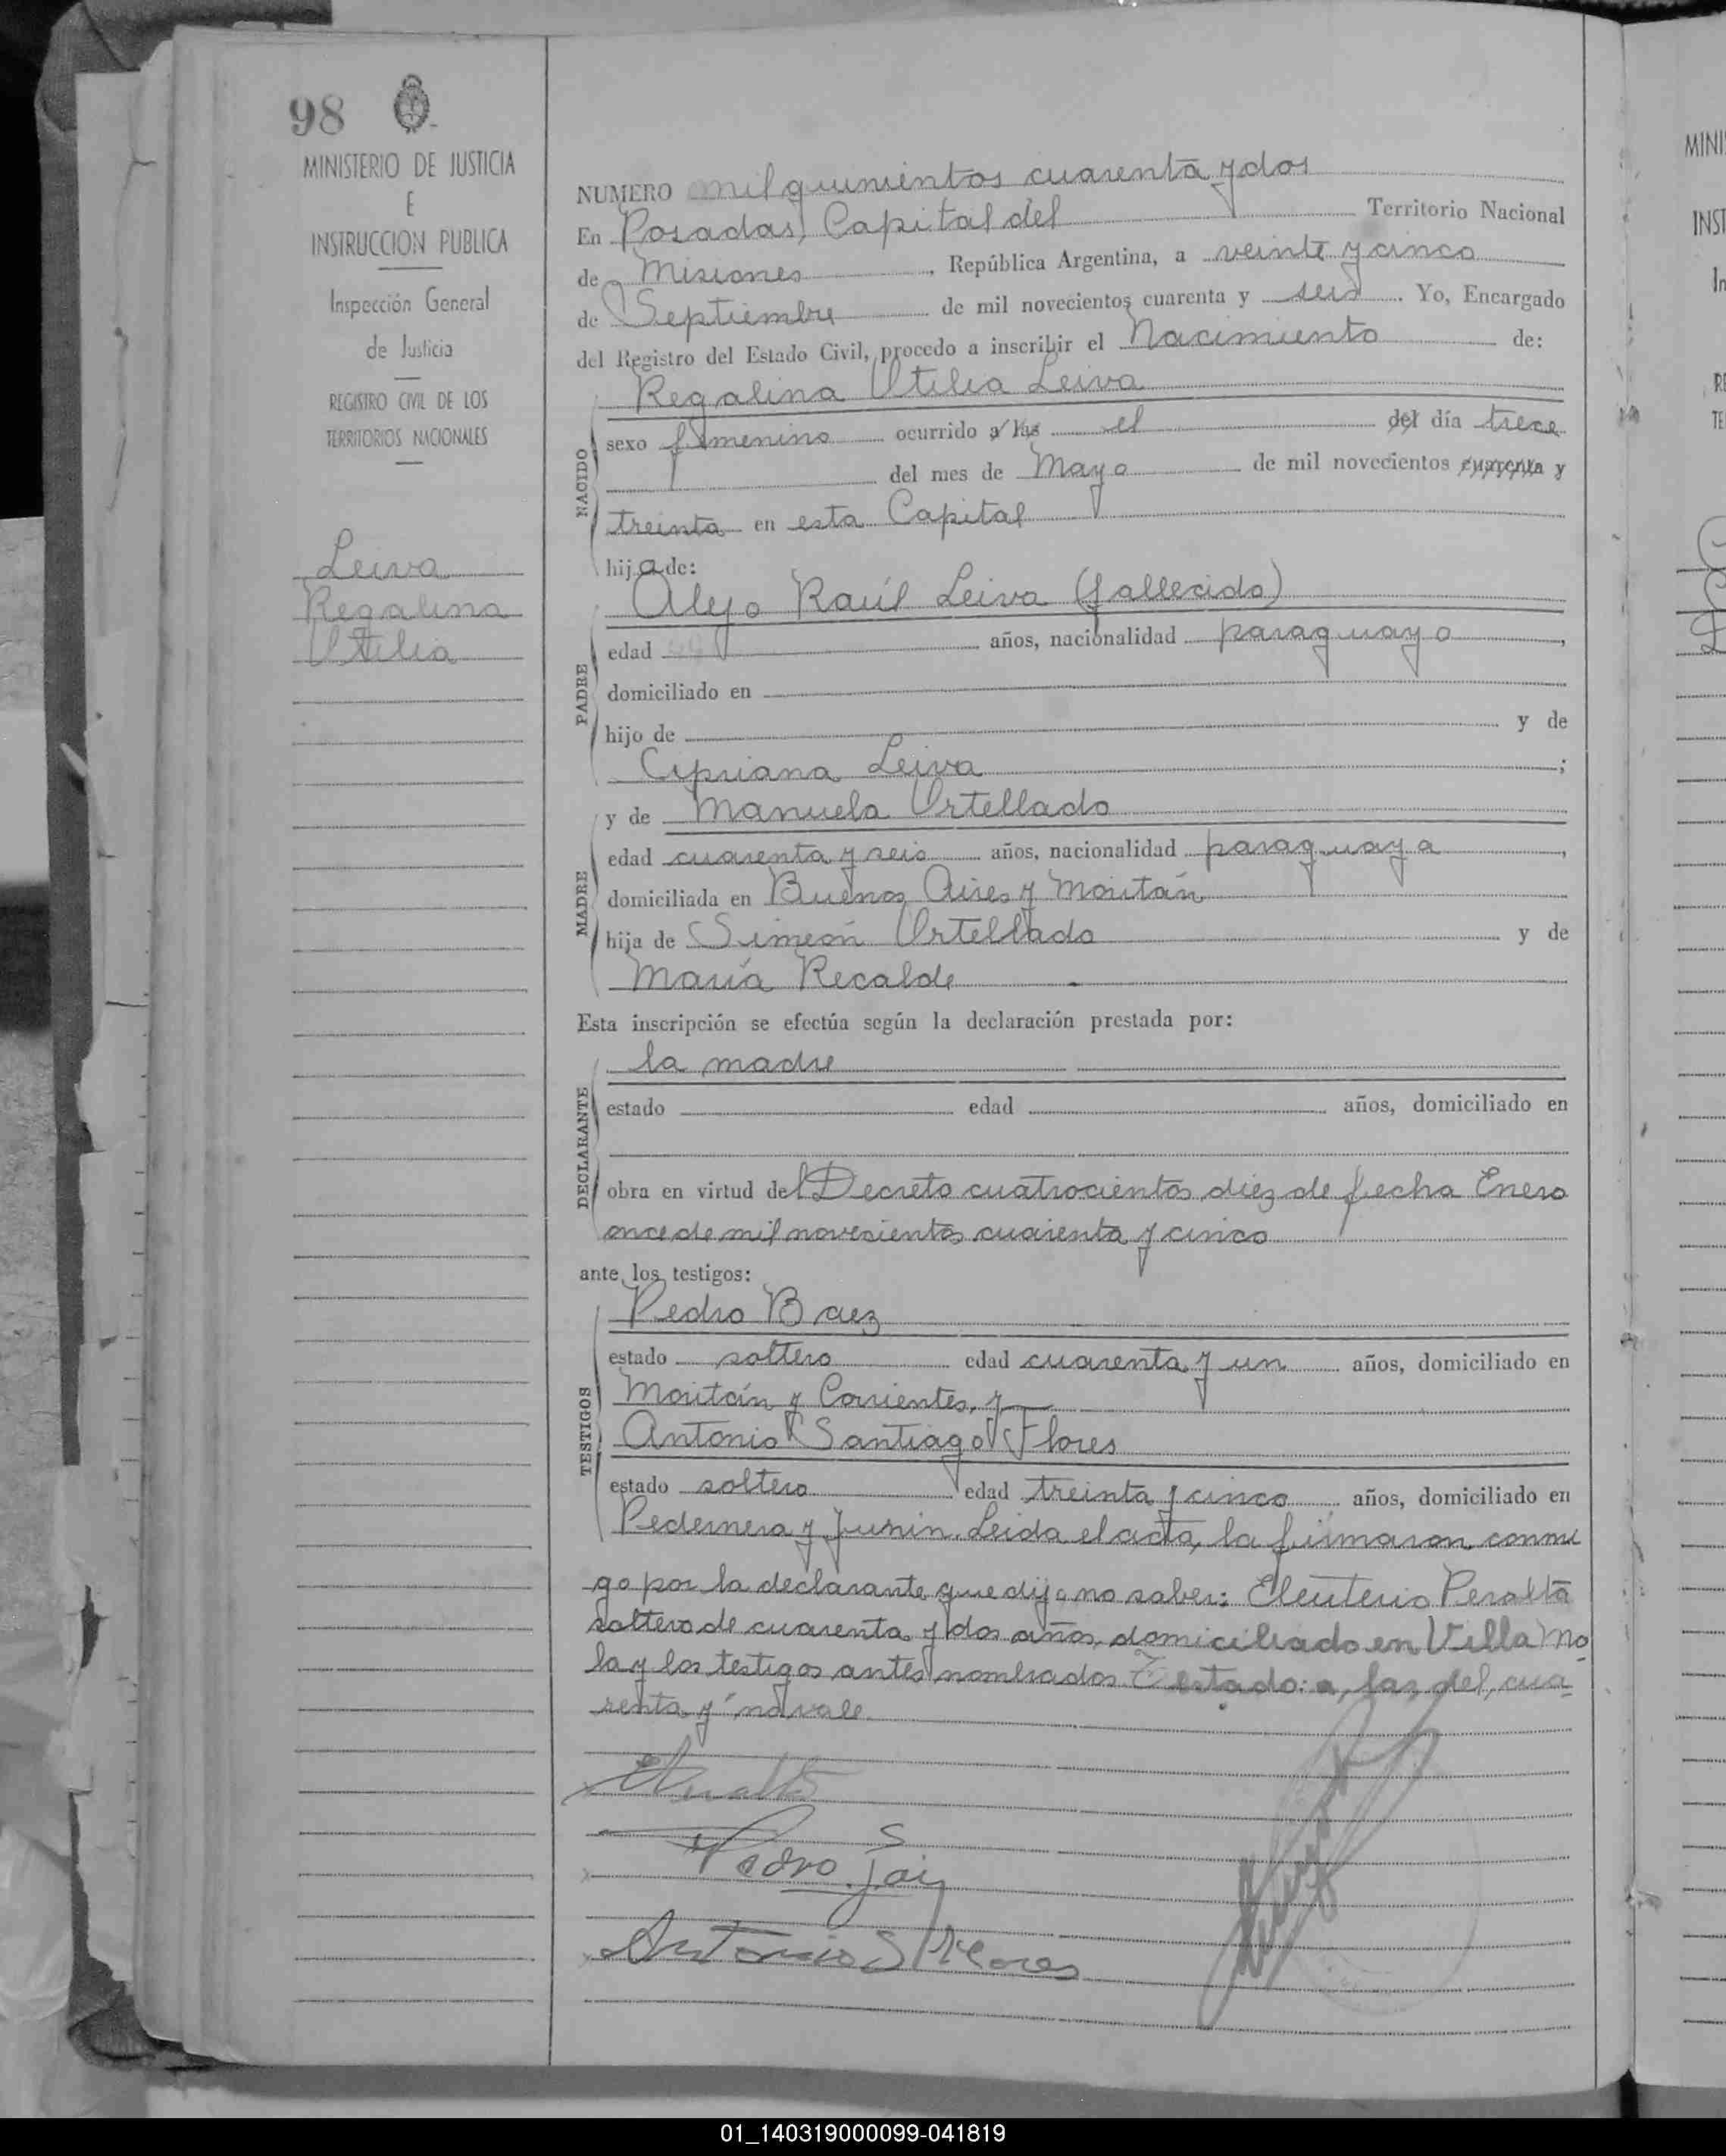 98
MINISTERIO DE JUSTICIA
E
INSTRUCCION PUBLICA
Inspección General
de Justicia
REGISTRO CIVIL DE LOS
TERRITORIOS NACIONALES
Leiva
Regalina
Utilia
NUMERO mil quinientos cuarenta y dos
En Posadas, Capital del Territorio Nacional
de Misiones, República Argentina, a veinte y cinco
de Septiembre de mil novecientos cuarenta y seis. Yo, Encargado
del Registro del Estado Civil, procedo a inscribir el Nacimiento de:
Regalina Utilia Leiva
NACIDO
sexo femenino ocurrido a las el del día trece
del mes de Mayo de mil novecientos cuarenta y
treinta en esta Capital
hija de:
Alejo Raúl Leiva (fallecido)
PADRE
edad años, nacionalidad paraguayo,
domiciliado en
hijo de y de
Cipriana Leiva;
y de Manuela Ortellado
MADRE
edad cuarenta y seis años, nacionalidad paraguaya,
domiciliada en Buenos Aires y Moritán
hija de Simeón Ortellado y de
María Recalde
Esta inscripción se efectúa según la declaración prestada por:
la madre
DECLARANTE
estado edad años, domiciliado en
obra en virtud del Decreto cuatrocientos diez de fecha Enero
once de mil novecientos cuarenta y cinco
ante los testigos:
Pedro Baez
TESTIGOS
estado soltero edad cuarenta y un años, domiciliado en
Moritán y Corrientes, y
Antonio Santiago Flores
estado soltero edad treinta y cinco años, domiciliado en
Pedernera y Junin. Leida el acta, la firmaron conmi
go por la declarante que dijo no saber: Eleuterio Peralta
soltero de cuarenta y dos años, domiciliado en Villa Mo
la y los testigos antes nombrados. Testado: a, las, del, cua-
renta y no vale.
Pedro
Antonio S Flores
MINI
INST
In
RE
TE
01_140319000099-041819